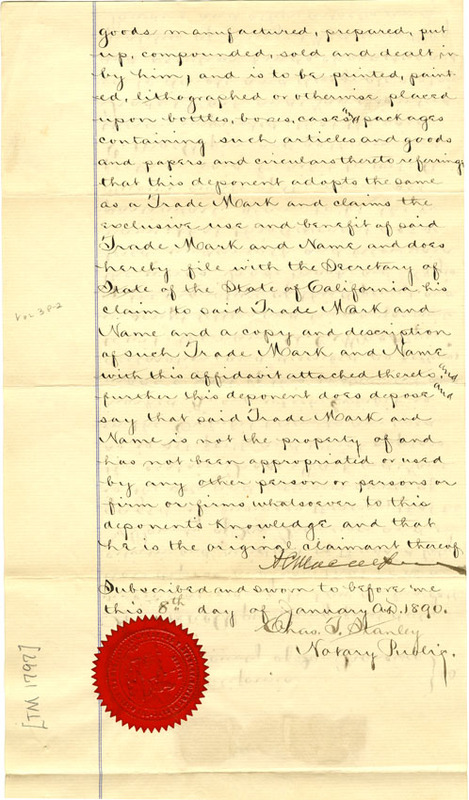 goods manufactured, prepared, put
up, compounded, sold and dealt in
by him, and is to be printed, paint-
ed, lithographed or otherwise placed
upon bottles, boxes, cases, packages
containing such articles and goods
and papers and circulars thereto referring,
that this deponent adopts the same
as a Trade Mark and claims the
exclusive use and benefit of said
Trade Mark and Name and does
hereby file with the Secretary of
State of the State of California his
claim to said Trade Mark and
Name and a copy and description
of such Trade Mark and Name
with this affidavit attached thereto, and
further this deponent does depose and
say that said Trade Mark and
Name is not the property of and
has not been appropriated or used
by any other person or persons or
firm or firms whatsoever to this
deponent's knowledge and that
he is the original claimant thereof.
Subscribed and sworn to before me
this 8th day of January A.D. 1890.
Chas. T. Stanley
Notary Public.
[TM 1792]